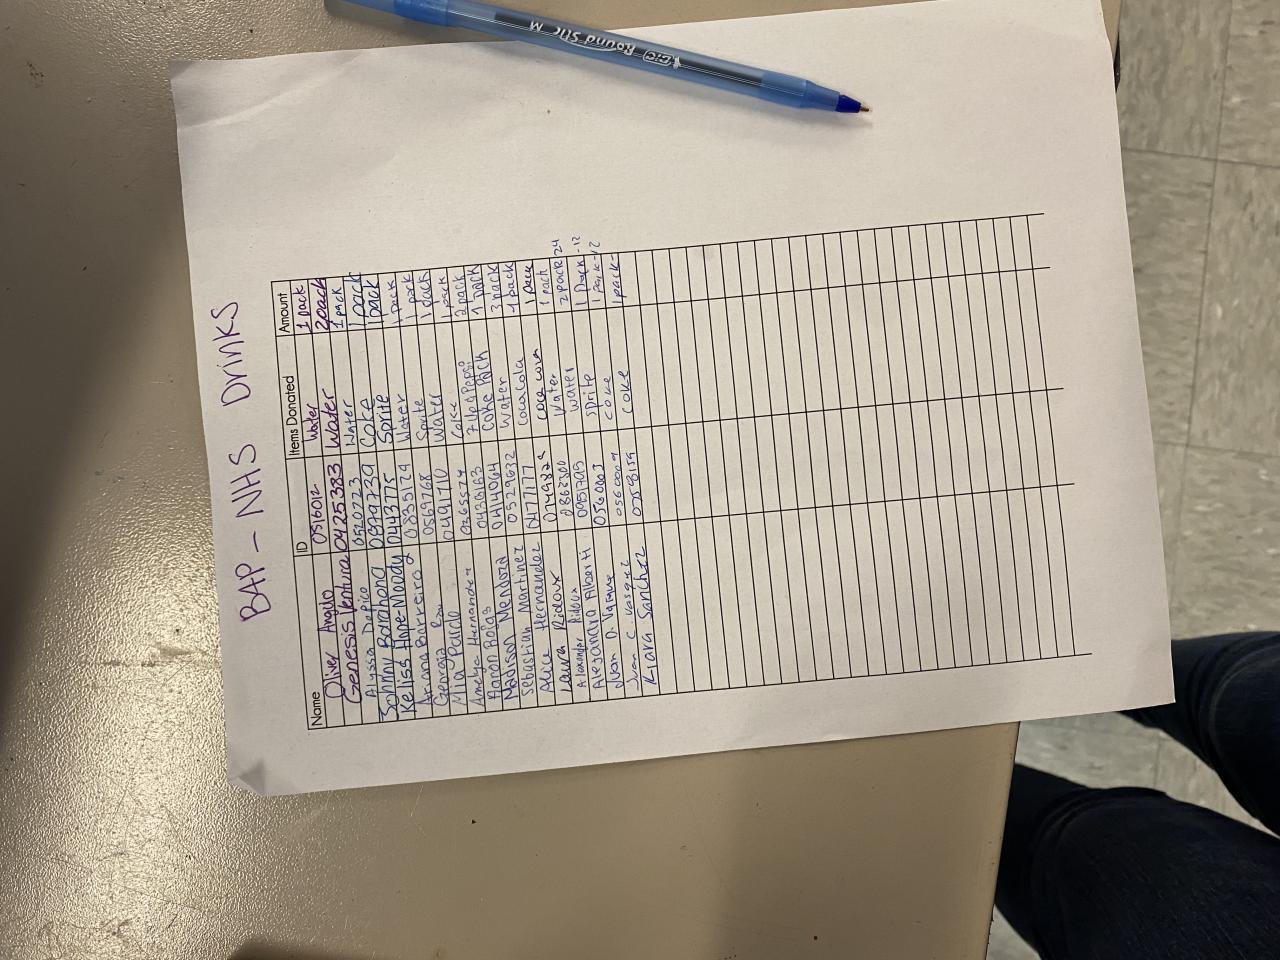 BAP - NHS Drinks
Name ID Items Donated Amount
Oliver Angulo 0516012 Water 1 pack
Genesis Ventura 0425383 Water 2 pack
Alyssa 0520723 Water 1 pack
Johnny Barahona Coke 1 pack
Keliss Hope-Moody 0443775 Sprite 1 pack
Ariana Barreiro Water 1 pack
Georgia Sprite 1 pack
Mia Pardo 0491710 Water 1 pack
Amelia Hernandez Coke 1 pack
Aaron Rojas Pepsi 2 pack
Madison Mendoza 0414064 Coke Pack 1 pack
Sebastian Martinez 0529632 Water 3 pack
Alice Hernandez 0477177 Coca Cola 1 pack
Laura Coca cola 1 pack
Alexander Water 1 pack
Alejandra Alberti Water 2 pack-24
Juan D. Sprite 1 pack-12
Juan C. Vasquez coke 1 pack-12
Kiara Sanchez coke 1 pack-
BIC Round Stic M